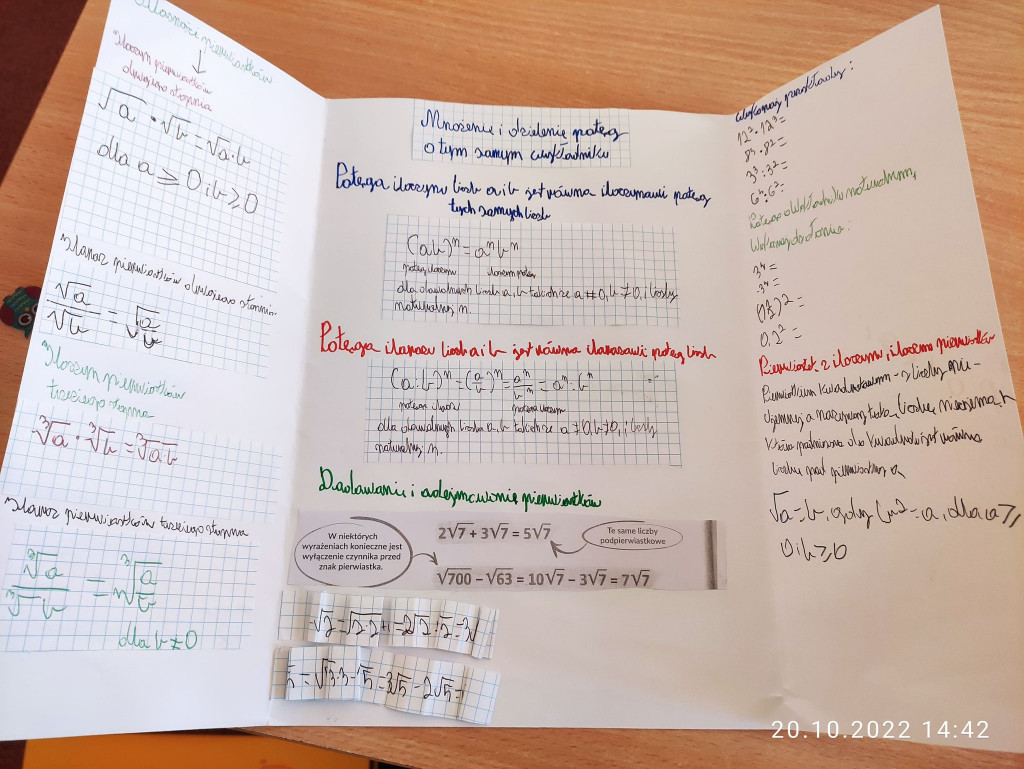 Własności pierwiastków
Iloczyn pierwiastków
drugiego stopnia
√a · √b = √a·b
dla a ≥ 0 i b ≥ 0
Iloraz pierwiastków drugiego stopnia
√a/√b = √a/b
Iloczyn pierwiastków
trzeciego stopnia
∛a · ∛b = ∛a·b
Iloraz pierwiastków trzeciego stopnia
∛a/∛b = ∛a/b
dla b ≠ 0
Mnożenie i dzielenie potęg
o tym samym wykładniku
Potęga iloczynu liczb a i b jest równa iloczynowi potęg
tych samych liczb
(ab)ⁿ = aⁿbⁿ
potęga iloczynu iloczyn potęg
dla dowolnych liczb a, b takich że a ≠ 0, b ≠ 0, i liczby
naturalnej n.
Potęga ilorazu liczb a i b jest równa ilorazowi potęg liczb
(a:b)ⁿ = (a/b)ⁿ = aⁿ/bⁿ = aⁿ:bⁿ
potęga
dla dowolnych liczb a, b takich że a ≠ 0, b ≠ 0, i liczby
naturalnej n.
Dodawanie i odejmowanie pierwiastków
W niektórych
wyrażeniach konieczne jest
wyłączenie czynnika przed
znak pierwiastka.
2√7 + 3√7 = 5√7
Te same liczby
podpierwiastkowe
√700 − √63 = 10√7 − 3√7 = 7√7
Wykonaj przykłady:
12² · 12³ =
8³ · 8² =
3³ : 3² =
6⁴ : 6² =
Potęga o wykładniku naturalnym,
Wykonaj działania:
3⁴ =
-3⁴ =
0,2² =
Pierwiastek z iloczynu, iloczyn pierwiastków
Pierwiastkiem kwadratowym - z liczby nie-
ujemnej a nazywamy taką liczbę nieujemną b
która podniesiona do kwadratu jest równa
liczbie pod pierwiastkiem a
√a = b, gdy b² = a, dla a ≥
0 i b ≥ 0
20.10.2022 14:42